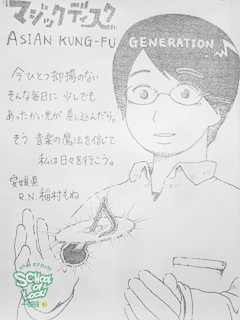 『マジックディスク』
ASIAN KUNG-FU GENERATION
今ひとつ抑揚のない
そんな毎日に 少しでも
あったかい光が 差し込んだら。
そう 音楽の魔法を信じて
私は日々を行こう。
愛媛県
R.N. 稲村もね
SCHOOL OF LOCK!